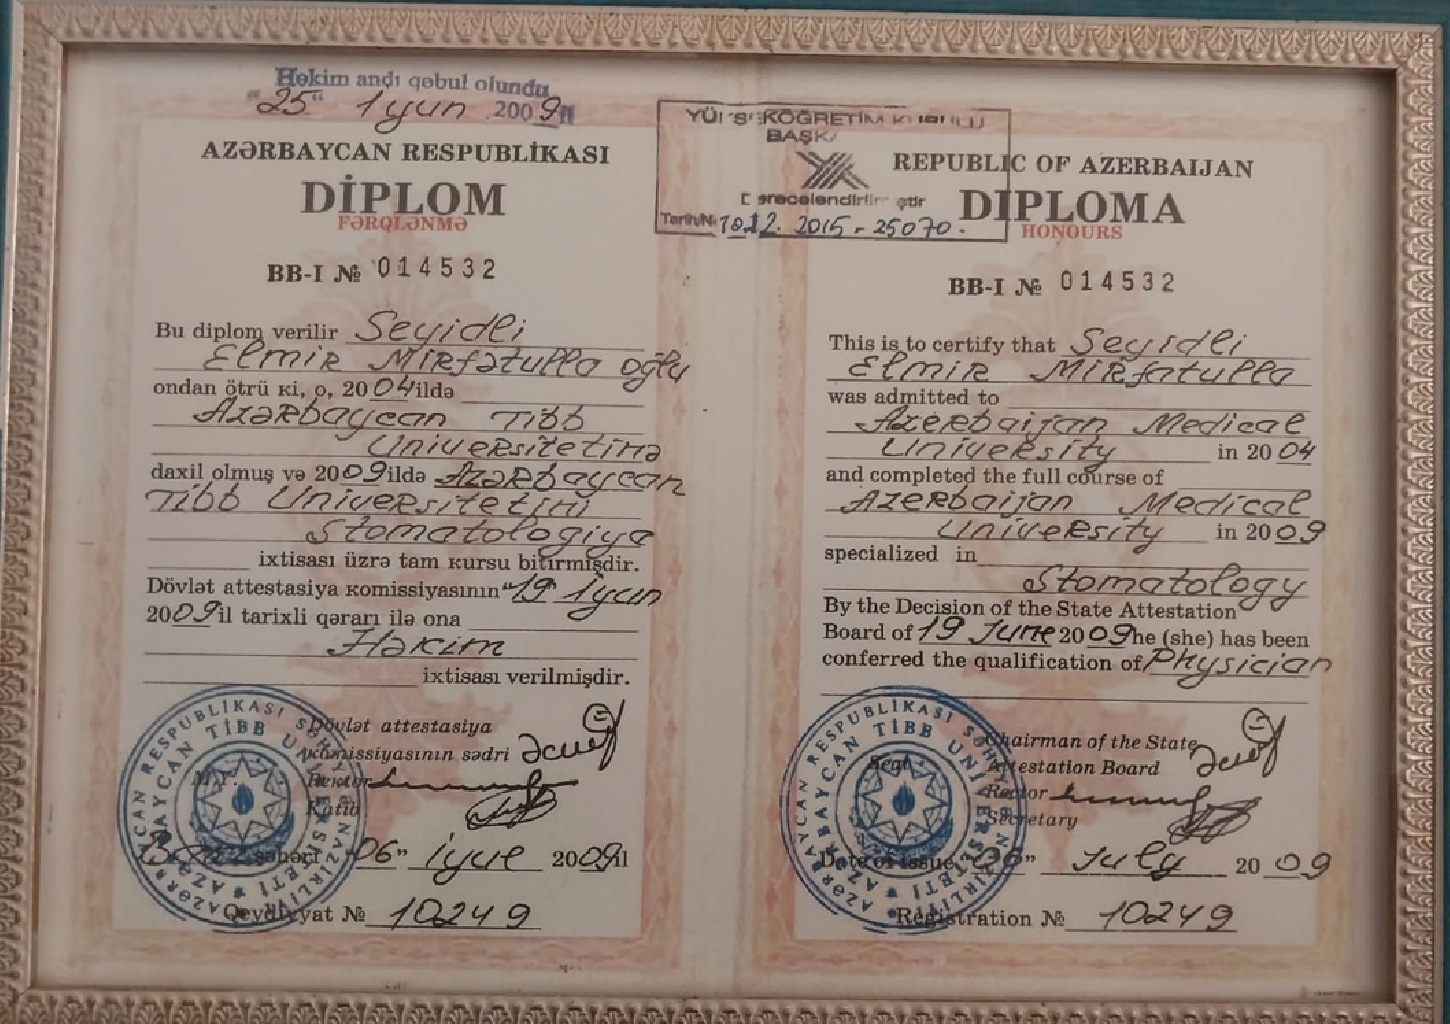 Həkim andı qəbul olundu
"25" İyun 2009 il
YÜKSEKÖĞRETİM KURULU
BAŞKA
Derecelendirilmiştir
Tarih/N: 10.12.2015 - 25070.
AZƏRBAYCAN RESPUBLİKASI
DİPLOM
FƏRQLƏNMƏ
BB-I № 014532
Bu diplom verilir Seyidli
Elmir Mirfətulla oğlu
ondan ötrü ki, o, 2004 ildə
Azərbaycan Tibb
Universitetinə
daxil olmuş və 2009 ildə Azərbaycan
Tibb Universitetini
Stomatologiya
ixtisası üzrə tam kursu bitirmişdir.
Dövlət attestasiya komissiyasının "19 İyun
2009 il tarixli qərarı ilə ona
Həkim
ixtisası verilmişdir.
Dövlət attestasiya
komissiyasının sədri
Rektor
Katib
M.Y.
Bakı şəhəri "06" İyul 2009 il
Qeydiyyat № 10249
AZƏRBAYCAN RESPUBLİKASI SƏHİYYƏ NAZİRLİYİ
AZƏRBAYCAN TİBB UNİVERSİTETİ
REPUBLIC OF AZERBAIJAN
DIPLOMA
HONOURS
BB-I № 014532
This is to certify that Seyidli
Elmir Mirfatulla
was admitted to
Azerbaijan Medical
University in 2004
and completed the full course of
Azerbaijan Medical
University in 2009
specialized in
Stomatology
By the Decision of the State Attestation
Board of 19 June 2009 he (she) has been
conferred the qualification of Physician
Chairman of the State
Attestation Board
Seal
Rector
Secretary
Date of issue "06" July 2009
Registration № 10249
AZƏRBAYCAN RESPUBLİKASI SƏHİYYƏ NAZİRLİYİ
AZƏRBAYCAN TİBB UNİVERSİTETİ